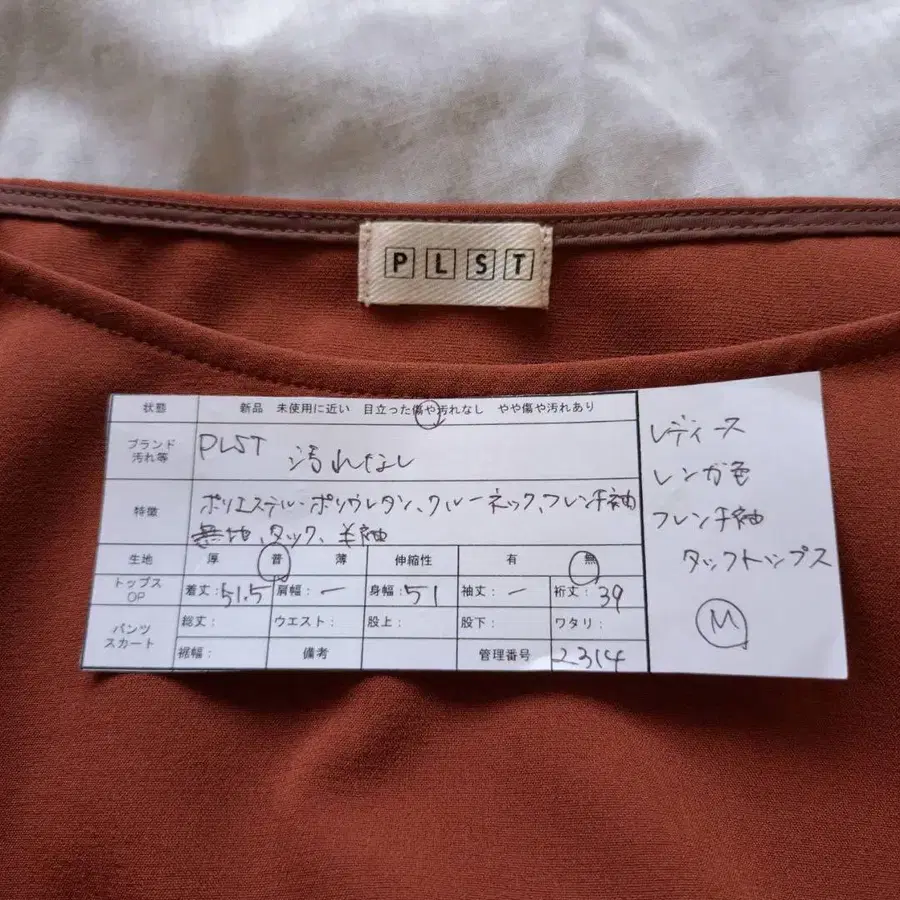 PLST
状態 新品 未使用に近い 目立った傷や汚れなし やや傷や汚れあり
ブランド 汚れ等 PLST 汚れなし
特徴 ポリエステル・ポリウレタン、クルーネック、フレンチ袖
無地、タック、半袖
生地 厚 普 薄 伸縮性 有 無
トップス OP 着丈:51.5 肩幅:ー 身幅:51 袖丈:ー 裄丈:39
パンツ スカート 総丈: ウエスト: 股上: 股下: ワタリ:
裾幅: 備考 管理番号 2314
レディース
レンガ色
フレンチ袖
タックトップス
M